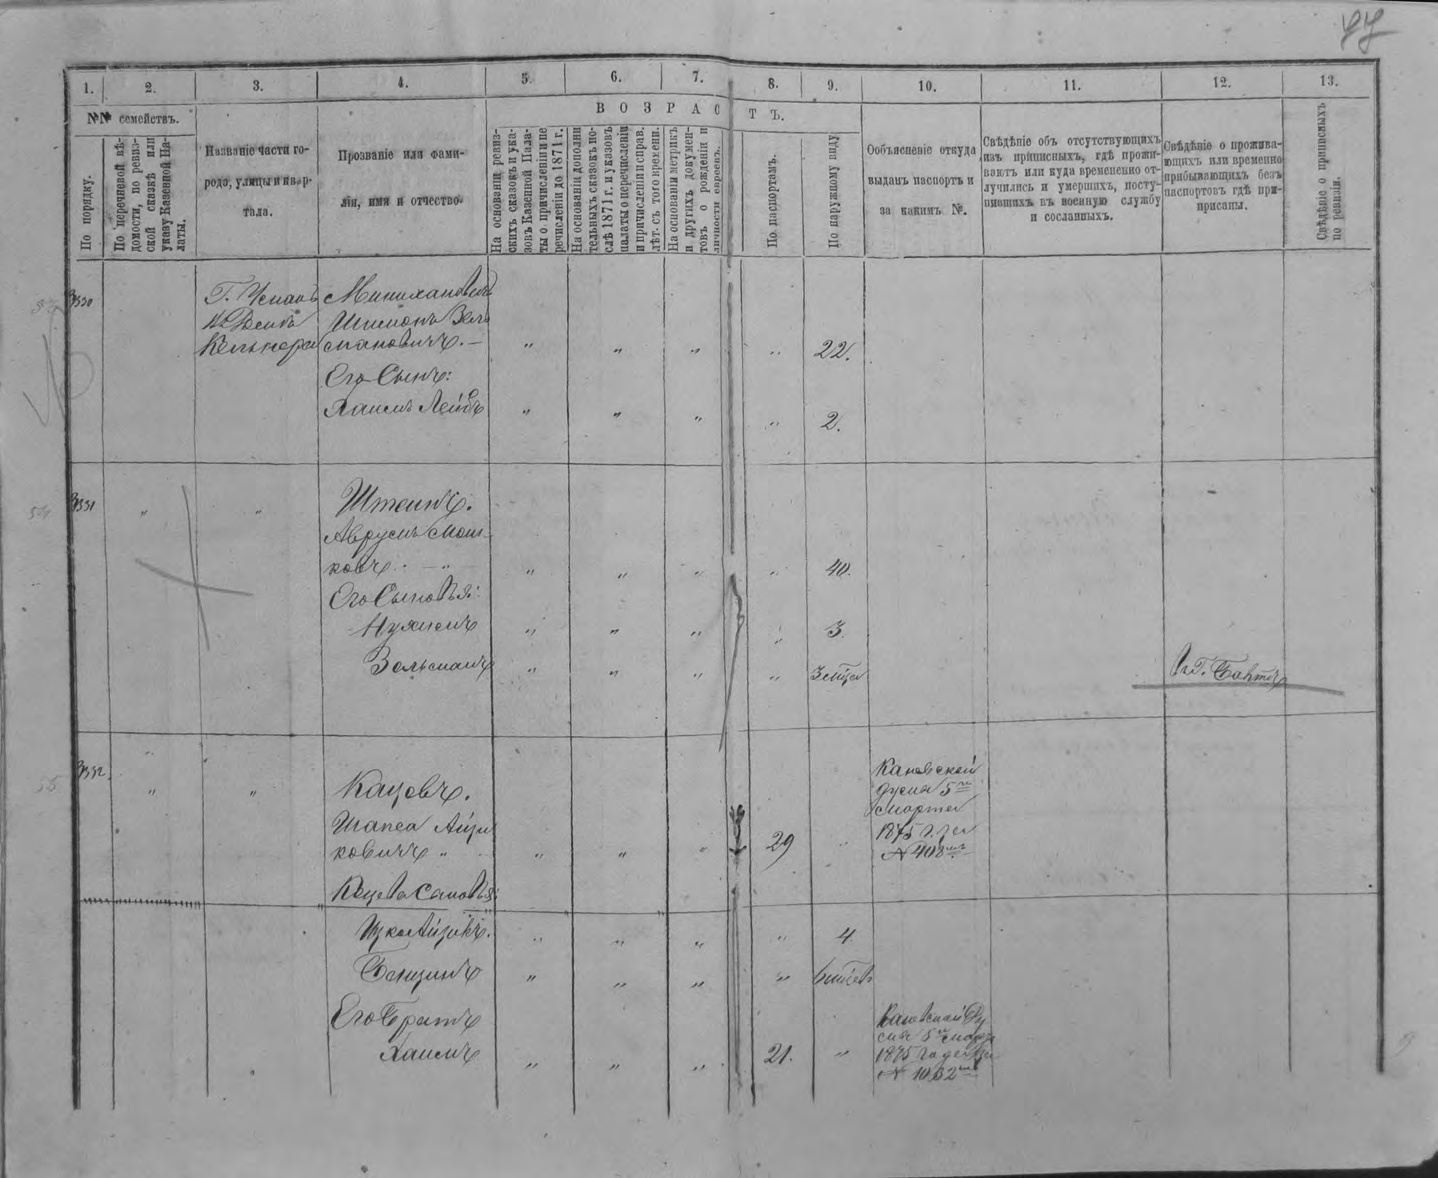 77
1. 2. 3. 4. 5. 6. 7. 8. 9. 10. 11. 12. 13.
№№ семействъ.
По порядку.
По перечневой вѣ-
домости, по ревиз-
ской сказкѣ или
указу Казенной Па-
латы.
Названіе части го-
рода, улицы и квар-
тала.
Прозваніе или фами-
лія, имя и отчество
ВОЗРАСТЪ.
На основаніи ревиз-
скихъ сказокъ и ука-
зовъ Казенной Пала-
ты о причисленіи и пе
речисленіи до 1871 г.
На основаніи дополни
тельныхъ сказокъ по-
слѣ 1871 г. и указовъ
палаты о перечисленіи
и причисленіи справ.
лѣт. съ того времени.
На основаніи метрикъ
и другихъ докумен-
товъ о рожденіи и
личности евреевъ.
По паспортамъ.
По наружному виду
Объясненіе откуда
выданъ паспортъ и
за какимъ №.
Свѣдѣніе объ отсутствующихъ
изъ приписныхъ, гдѣ прожи-
ваютъ или куда временно от-
лучились и умершихъ, посту-
пившихъ въ военную службу
и сосланныхъ.
Свѣдѣніе о прожива-
ющихъ или временно
прибывающихъ безъ
паспортовъ гдѣ при-
писаны.
Свѣдѣніе о приписныхъ
по ревизіи.
Г. Умань
Кельнера
Шимонъ Зель
мановичъ. — " " " " 22.
Его Сынъ:
Хаимъ Лейбъ " " " " 2.
Штеинъ.
Аврумъ Мош-
ковъ. — " " " " " 40.
Его Сыновья:
Нухимъ " " " " 3.
Зельманъ " " " "
Кацовъ.
Шапса Айзи
ковичъ " " " " 29 "
Кановской
думы 5го
марта
1875 г. за
№ 408мъ
Ицко Айзикъ. " " " " 4
Бенционъ " " " "
Его Братъ
Хаимъ " " " 21. "
1875 года за
№ 1032мъ